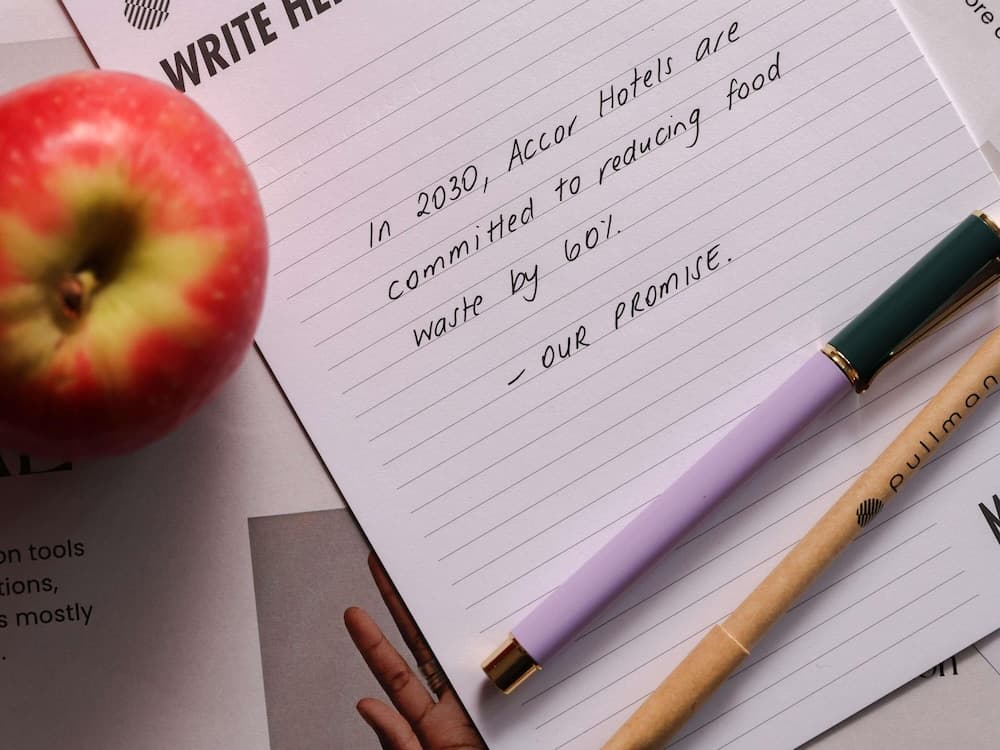 WRITE
In 2030, Accor Hotels are
committed to reducing food
waste by 60%.
- OUR PROMISE.
pullman
tools
mostly